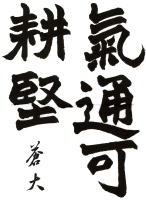 氣通可
耕堅
蒼大